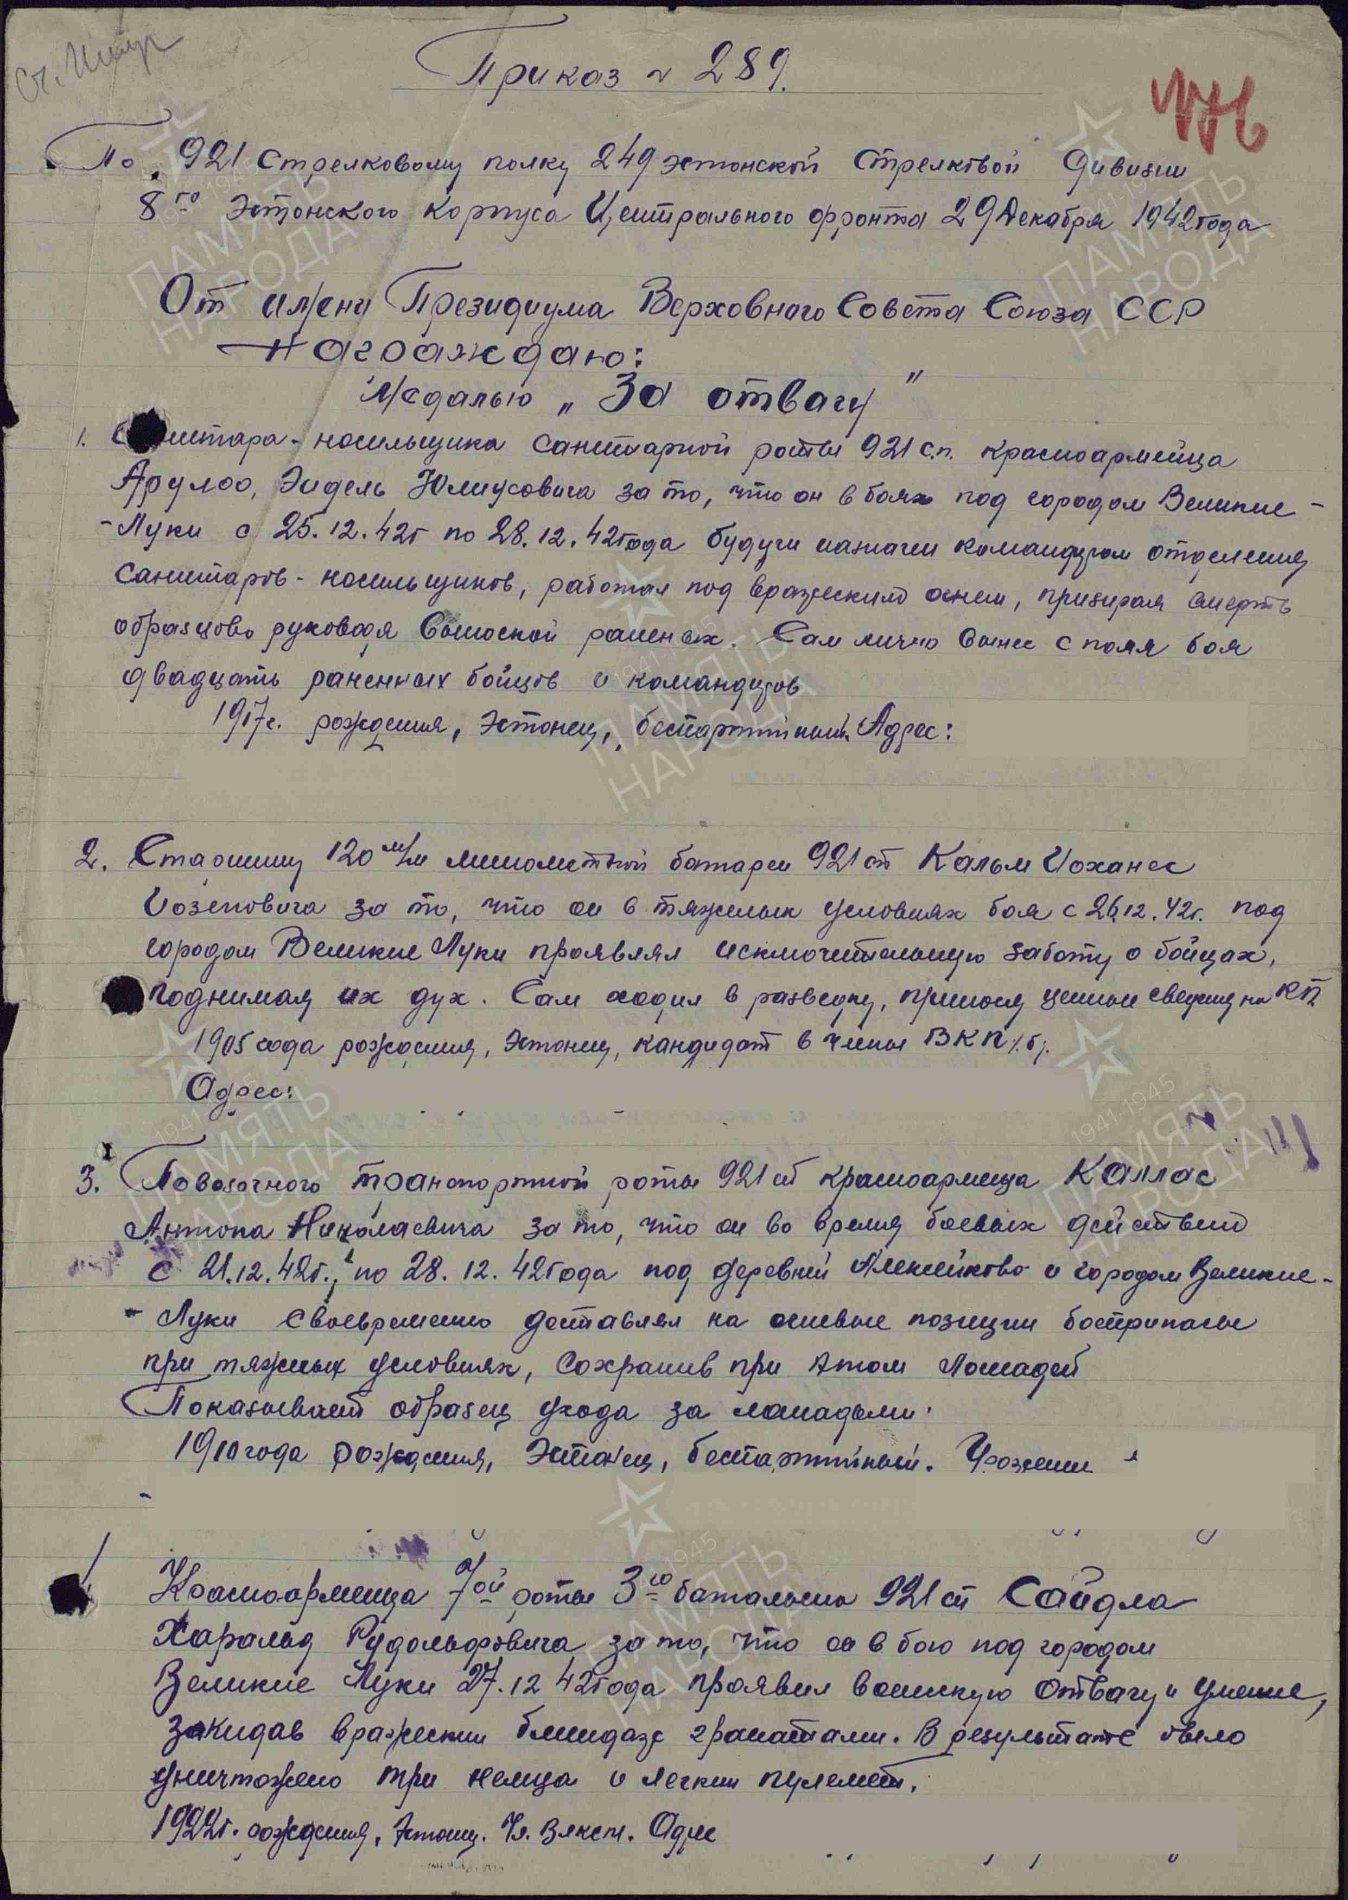 Приказ № 289.
По 921 стрелковому полку 249 эстонской стрелковой дивизии
8го Эстонского корпуса Центрального фронта 29 декабря 1942 года
От имени Президиума Верховного Совета Союза ССР
Награждаю:
Медалью „За отвагу"
1. Санитара-носильщика санитарной роты 921 с.п. красноармейца
Арулоо, Эндель Юлиусовича за то, что он в боях под городом Великие-
-Луки с 25.12.42г по 28.12.42 года будучи назначен командиром отделения
санитаров-носильщиков, работая под вражеским огнем, призирая смерть
образцово руководя выноской раненых. Сам лично вынес с поля боя
двадцать раненных бойцов и командиров
1917г. рождения, Эстонец, беспартийный. Адрес:
2. Старшину 120 м/м минометной батареи 921 сп Кальм Иоханес
Иозеповича за то, что он в тяжелых условиях боя с 26.12.42г. под
городом Великие Луки проявлял исключительную заботу о бойцах,
поднимая их дух. Сам ходил в разведку, принося ценные сведения на КП
1905 года рождения, Эстонец, кандидат в члены ВКП/б/.
Адрес:
3. Повозочного транспортной роты 921 сп красноармейца Каллас
Антона Николаевича за то, что он во время боевых действий
с 21.12.42г., по 28.12.42 года под деревней Алексейково и городом Великие-
- Луки своевременно доставлял на огневые позиции боеприпасы
при тяжелых условиях, сохранив при этом лошадей
Показывает образец ухода за лошадьми.
1910 года рождения, Эстонец, беспартийный.
Красноармейца 7ой роты 3го батальона 921 сп Сайдла
Харальд Рудольфовича за то, что он в бою под городом
Великие Луки 27.12.42 года проявил воинскую отвагу и умение,
закидав вражеский блиндаж гранатами. В результате было
уничтожено три немца и легкий пулемет.
1922г. рождения, Эстонец. Чл. ВЛКСМ. Адрес
ПАМЯТЬ
НАРОДА
1941-1945